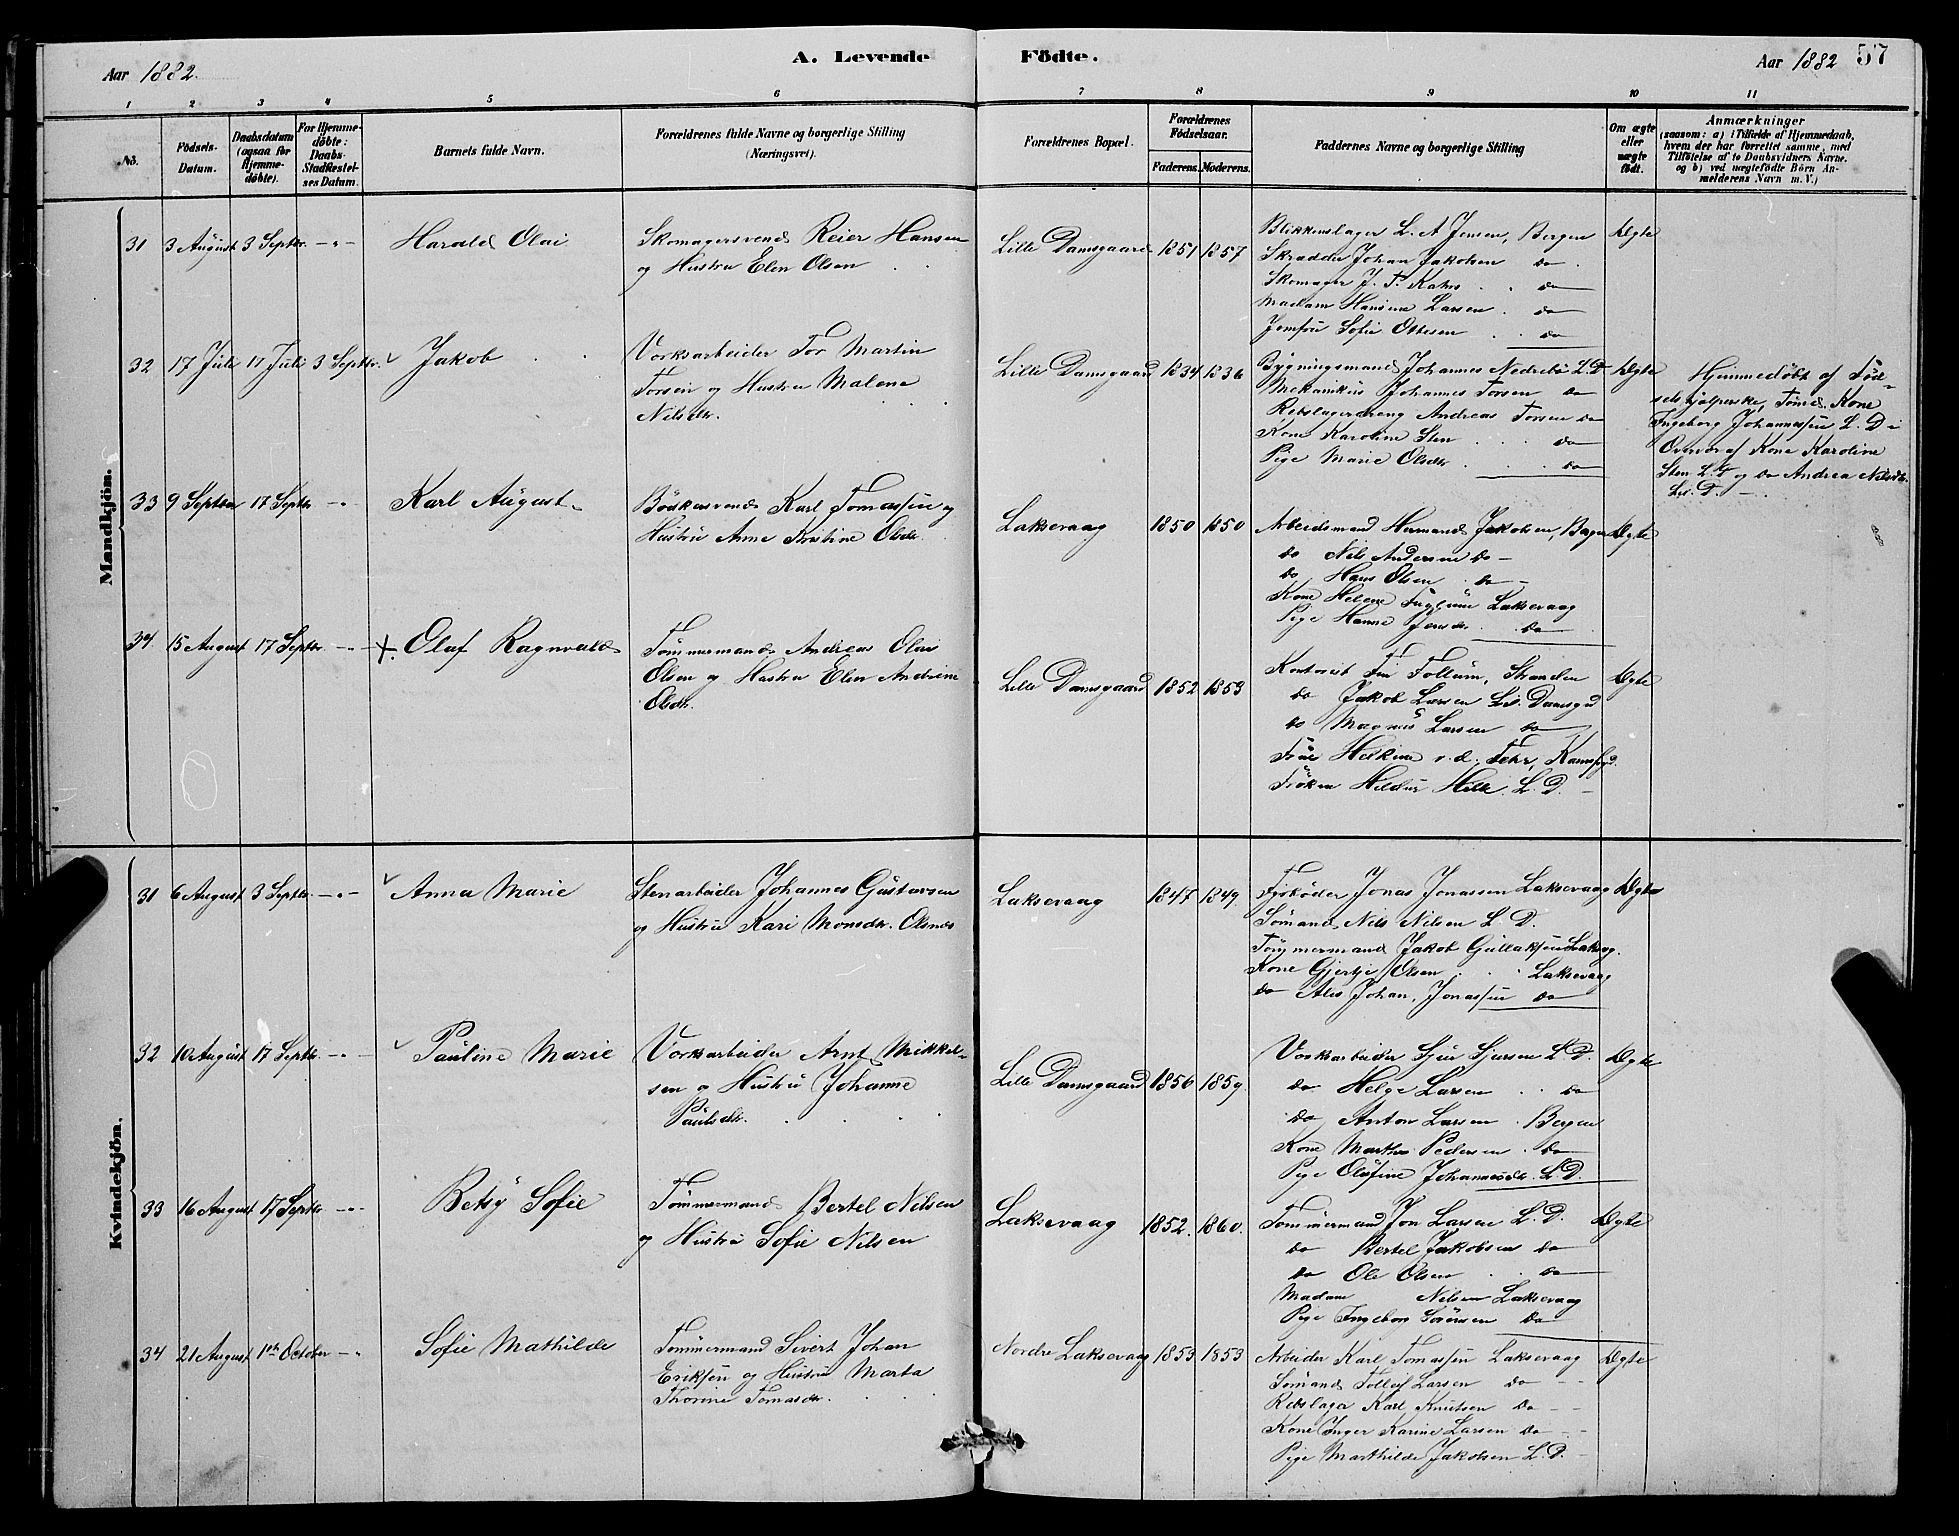 Aar 1882.
A. Levende
Födte.
Aar 1882 57
1 2 3 4 5 6 7 8 9 10 11
No.
Födsels-Datum.
Daabsdatum (ogsaa for Hjemme-döbte).
For Hjemme-döbte: Daabs-Stadfæstel-ses Datum.
Barnets fulde Navn.
Forældrenes fulde Navne og borgerlige Stilling (Næringsvei).
Forældrenes Bopæl.
Forældrenes Födselsaar.
Faderens. Moderens.
Faddernes Navne og borgerlige Stilling
Om ægte eller uægte födt.
Anmærkninger
(saasom: a) i Tilfælde af Hjemmedaab,
hvem der har forrettet samme, med
Tilföielse af to Daabsvidners Navne.
og b) ved uægtefödte Börn An-
melderens Navn m. V.)
Mandkjön.
31 3 August 3 Septbr. -"- Harald Olai
Skomagersvend Reier Hansen
og Hustru Elen Olsen
Lille Damsgaard 1851 1857
Blikkenslager L. A Jensen, Bergen
Skrædder Johan Jakobsen do
Skomager J. T. Kahrs do
Madam Hansine Larsen do
Jomfru Sofie Ottesen do
Ægte
32 17 Juli 17 Juli 3 Septbr. Jakob
Værksarbeider Tor Martin
Torsen og Hustru Malene
Nilsdtr.
Lille Damsgaard 1834 1836
Bygningsmand Johannes Nedrebö L.D
Mekanikus Johannes Torsen do
Rebslagerdreng Andreas Torsen do
Kone Karoline Sten do
Pige Marie Olsdtr do
Ægte
Hjemmedöbt af Föd-
selshjælperske, Tömd. Kone
Ingeborg Johannessen L. D i
Overvær af Kone Karoline
Sten L. D og do Andrea Nilsdtr.
Lil. D.
33 9 Septbr 17 Septbr -"- Karl August
Bödkersvend Karl Tomassen og
Hustru Anne Kristine Olsdtr.
Laksevaag 1850 1850
Arbeidsmand Hermand Jakobsen, Bergen
do Nils Andersen do
do Hans Olsen do
Kone Helene Laksevaag
Pige Hanne Jensdtr do
Ægte
34 15 August 17 Septbr -"- Olaf Ragnvald
Tömmermand Andreas Olai
Olsen og Hustru Elen Andrine
Olsdtr.
Lille Damsgaard 1852 1853
Kontorist Fin Follum, Stranden
do Jakob Larsen Lil. Damsgd
do Magnus Larsen do
Frue Helkine v.d. Fehr,
Fröken Hildur L. D.
Ægte
Kvindekjön.
31 6 August 3 Septbr. -"- Anna Marie
Stenarbeider Johannes Gustavsen
og Hustru Kari Monsdtr. Olsnes
Laksevaag 1847 1849.
Jonas Jonassen Laksevaag
Sömand Nils Nilsen L. D.
Tömmermand Jakob Gullaksen Laksvg.
Kone Gjertje Olsen Laksevaag
do Johan. Jonassen do
Ægte
32 10 August 17 Septbr. -"- Pauline Marie
Værksarbeider Arnt Mikkel-
sen og Hustru Johanne
Paulsdtr.
Lille Damsgaard 1856 1859.
Værksarbeider Sjur Sjursen L. D.
do Helge Larsen do
do Anton Larsen Bergen
Kone Martha Pedersen do
Pige Olufine Johannesdtr. L. D.
Ægte
33 16 August 17 Septbr -"- Betsy Sofie
Tömmermand Bertel Nilsen
og Hustru Sofie Nilsen
Laksevaag 1852. 1860.
Tömmermand Jon Larsen L. D.
do Bertel Jakobsen do
do Ole Olsen do
Madam Nilsen Laksevaag
Pige Ingeborg Sörensen do
Ægte
34 21 August 1ste October -"- Sofie Mathilde
Tömmermand Sivert Johan
Eriksen og Hustru Marta
Thorine Tomasdtr.
Nordre Laksevaag 1853 1853
Arbeider Karl Tomassen Laksevaag
Sömand Tollef Larsen do
Rebslager Karl Knutsen do
Kone Inger Karine Larsen do
Pige Marthilde Jakobsen L. D.
Ægte